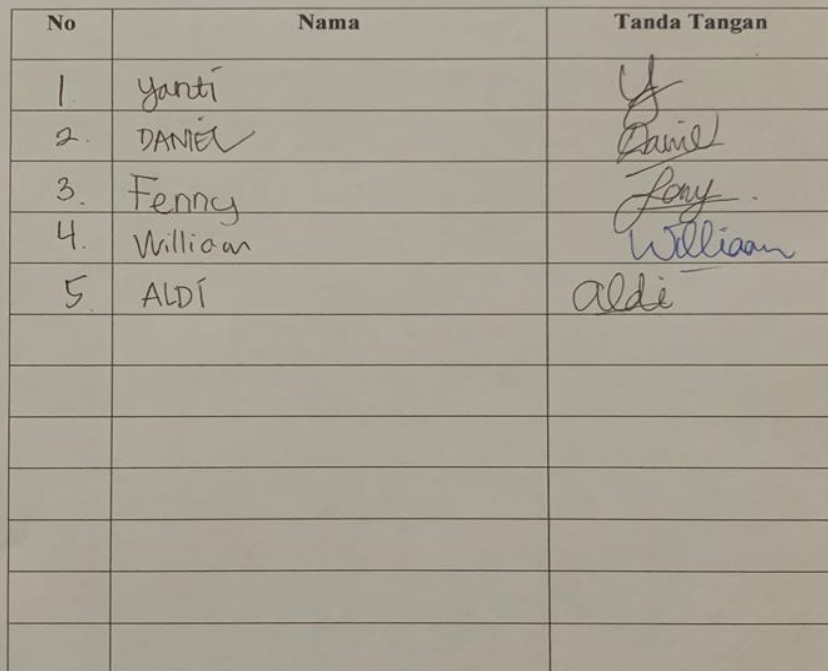 No Nama Tanda Tangan
1. Yanti Y
2. DANIEL Daniel
3. Fenny
4. William William
5. ALDI aldi